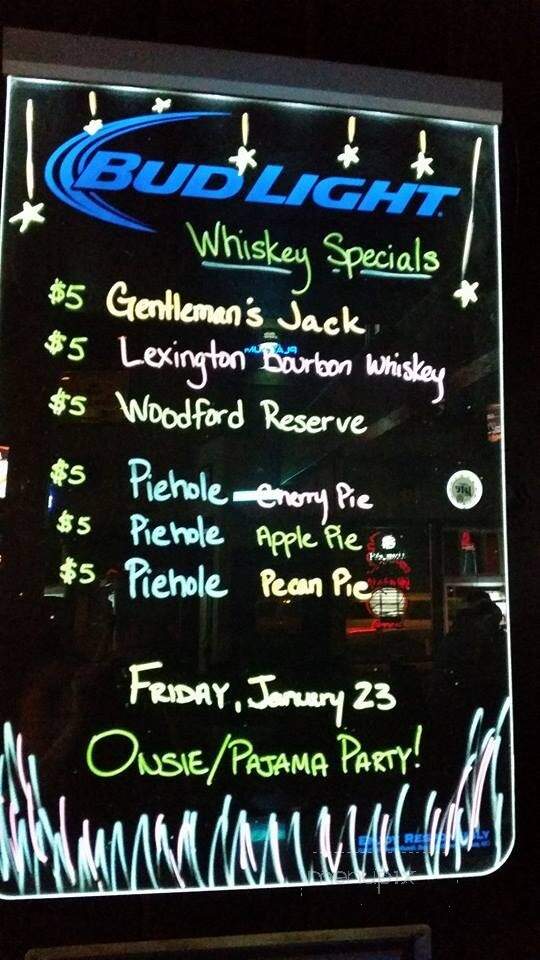 BUD LIGHT
Whiskey Specials
$5 Gentleman's Jack
$5 Lexington Bourbon Whiskey
$5 Woodford Reserve
$5 Piehole Cherry Pie
$5 Piehole Apple Pie
$5 Piehole Pecan Pie
FRIDAY, January 23
ONSIE/PAJAMA PARTY!